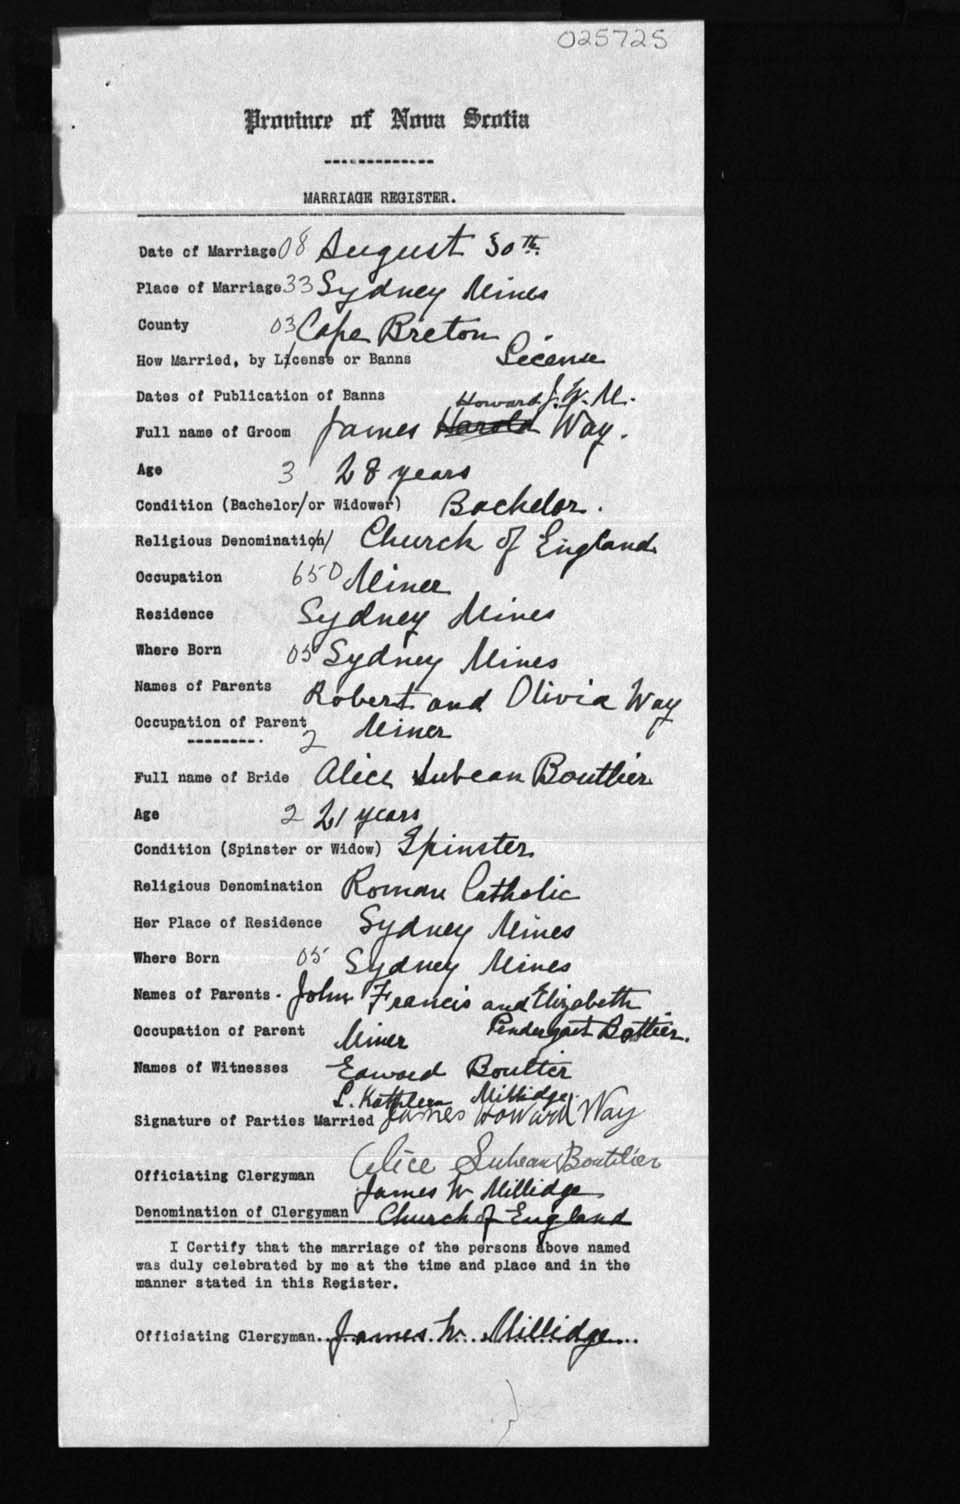 025725
Province of Nova Scotia
MARRIAGE REGISTER.
Date of Marriage 08 August 30th.
Place of Marriage 33 Sydney Mines
County 03 Cape Breton
How Married, by License or Banns License
Dates of Publication of Banns
Howard J.W.M.
Full name of Groom James Harold Way.
Age 3 28 years
Condition (Bachelor/or Widower) Bachelor.
Religious Denomination Church of England
Occupation 650 Miner
Residence Sydney Mines
Where Born 05 Sydney Mines
Names of Parents Robert and Olivia Way
Occupation of Parent 2 Miner
Full name of Bride Alice Subean Boutlier
Age 2 21 years
Condition (Spinster or Widow) Spinster
Religious Denomination Roman Catholic
Her Place of Residence Sydney Mines
Where Born 05 Sydney Mines
Names of Parents. John Francis and Elizabeth
Occupation of Parent Miner Pendergast
Names of Witnesses Edward Boultier
L. Kathleen Millidge.
Signature of Parties Married James Howard Way
Alice Subean Boutilier
Officiating Clergyman James W Millidge
Denomination of Clergyman Church of England
I Certify that the marriage of the persons above named
was duly celebrated by me at the time and place and in the
manner stated in this Register.
Officiating Clergyman...James. W...Millidge...